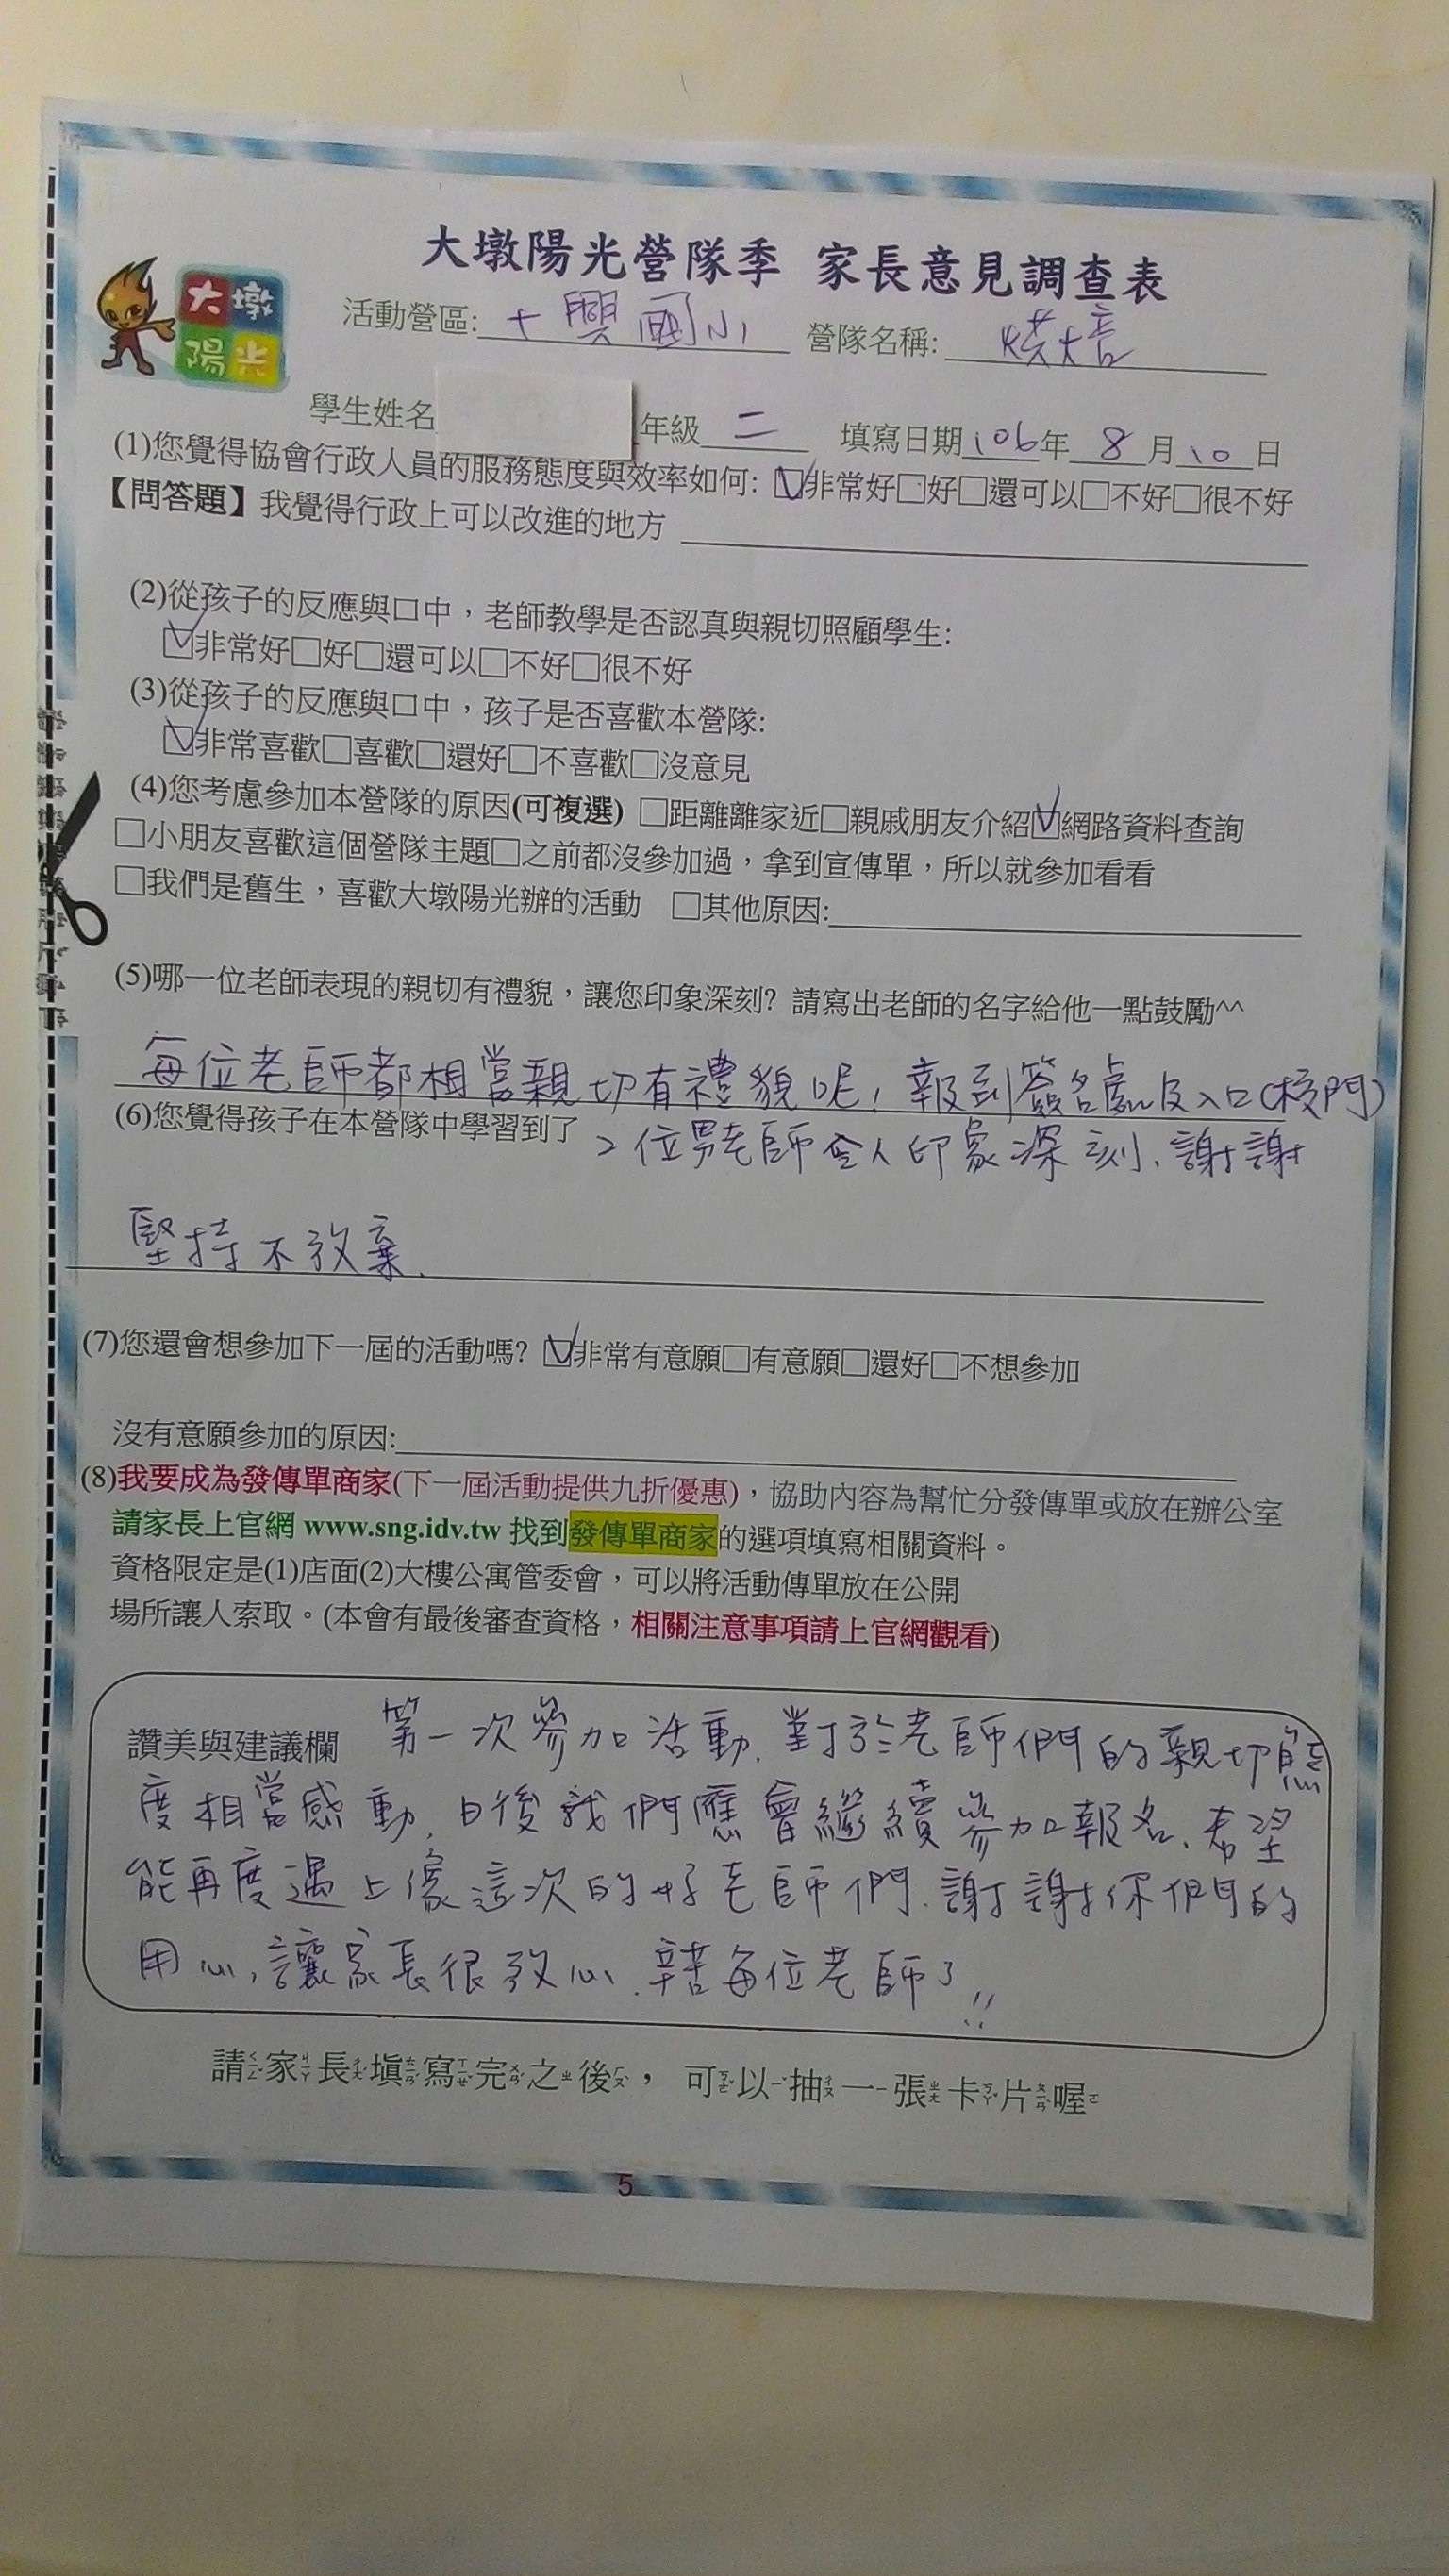 大墩陽光營隊季 家長意見調查表
大墩
陽光
活動營區: 十興國小 營隊名稱: 烘焙
學生姓名 年級 二 填寫日期 106 年 8 月 10 日
(1)您覺得協會行政人員的服務態度與效率如何: ☑非常好□好□還可以□不好□很不好
【問答題】我覺得行政上可以改進的地方
(2)從孩子的反應與口中，老師教學是否認真與親切照顧學生:
☑非常好□好□還可以□不好□很不好
(3)從孩子的反應與口中，孩子是否喜歡本營隊:
☑非常喜歡□喜歡□還好□不喜歡□沒意見
(4)您考慮參加本營隊的原因(可複選) □距離離家近□親戚朋友介紹☑網路資料查詢
□小朋友喜歡這個營隊主題□之前都沒參加過，拿到宣傳單，所以就參加看看
□我們是舊生，喜歡大墩陽光辦的活動 □其他原因:
(5)哪一位老師表現的親切有禮貌，讓您印象深刻? 請寫出老師的名字給他一點鼓勵^^
每位老師都相當親切有禮貌呢! 報到簽名處及入口(校門)
2位男老師令人印象深刻、謝謝
(6)您覺得孩子在本營隊中學習到了
堅持不放棄.
(7)您還會想參加下一屆的活動嗎? ☑非常有意願□有意願□還好□不想參加
沒有意願參加的原因:
(8)我要成為發傳單商家(下一屆活動提供九折優惠)，協助內容為幫忙分發傳單或放在辦公室
請家長上官網 www.sng.idv.tw 找到發傳單商家的選項填寫相關資料。
資格限定是(1)店面(2)大樓公寓管委會，可以將活動傳單放在公開
場所讓人索取。(本會有最後審查資格，相關注意事項請上官網觀看)
讚美與建議欄 第一次參加活動、對於老師們的親切態
度相當感動，日後我們應會繼續參加報名、希望
能再度遇上像這次的好老師們、謝謝你們的
用心，讓家長很放心、辛苦每位老師了!!
請家長填寫完之後， 可以抽一張卡片喔
5